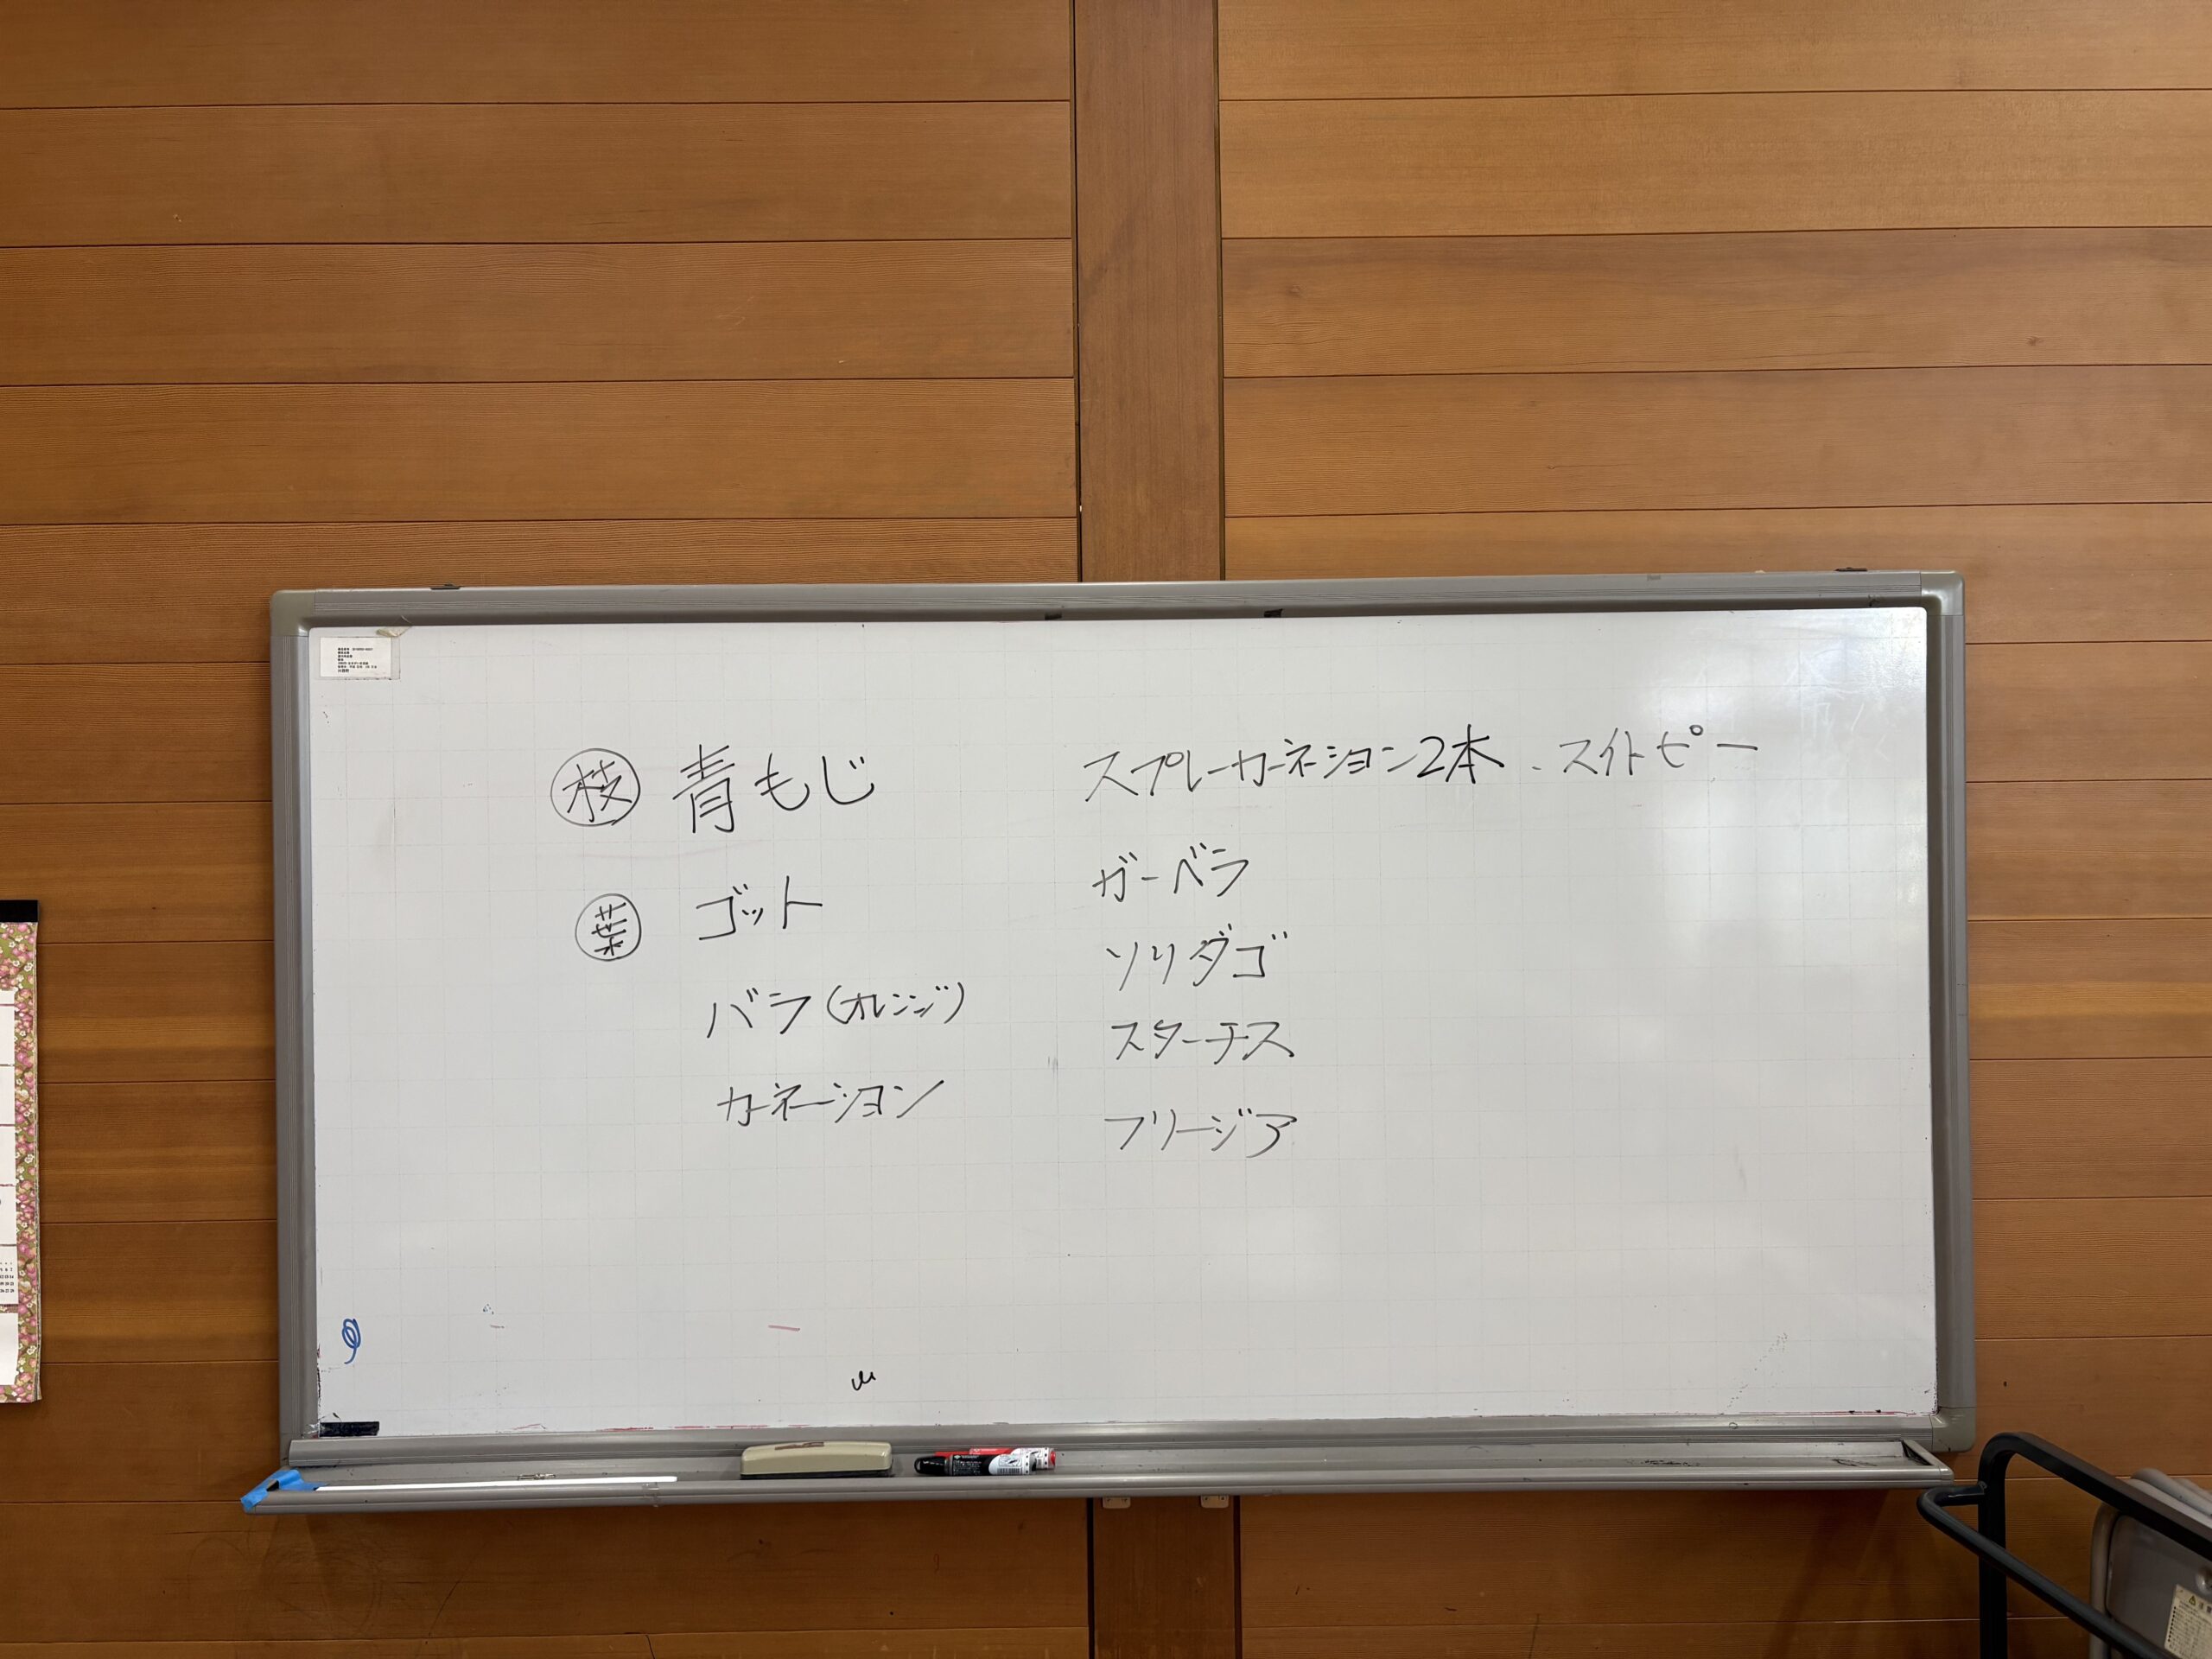 枝 青もじ
葉 ゴット
バラ(オレンジ)
カーネーション
スプレーカーネーション2本、スイトピー
ガーベラ
ソリダゴ
スターチス
フリージア